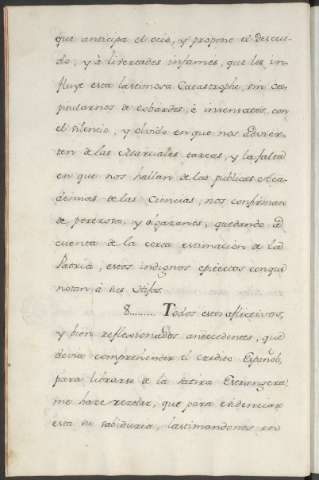 que anticipa el ocio, y propone el descui-
do, y à libertades infames, que les in-
fluye esta lastimosa Catastrophe, sin ca-
pitularnos de cobardes, è insensatos, con
el silencio, y olvido en que nos advier-
ten de las Marciales tareas, y la falta
en que nos hallan de las publicas Aca-
demias de las Ciencias, nos confirman
de perezosos, y olgazanes, quedando à
cuenta de la corta estimacion de la
Patria, estos indignos epitectos conque
notan à sus Hijos.
8......... Todos estos aflictivos,
y bien reflexionados antecedentes, que
devia comprehender el credito Español,
para librarse de la satira Estrangera
me haze rezelar, que para evidenciar
esta su sabiduria, lastimandonos en